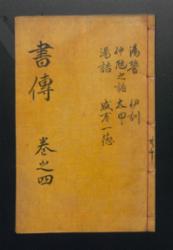 湯誓 伊訓
仲虺之誥 太甲
湯誥 咸有一德
書傳 卷之四